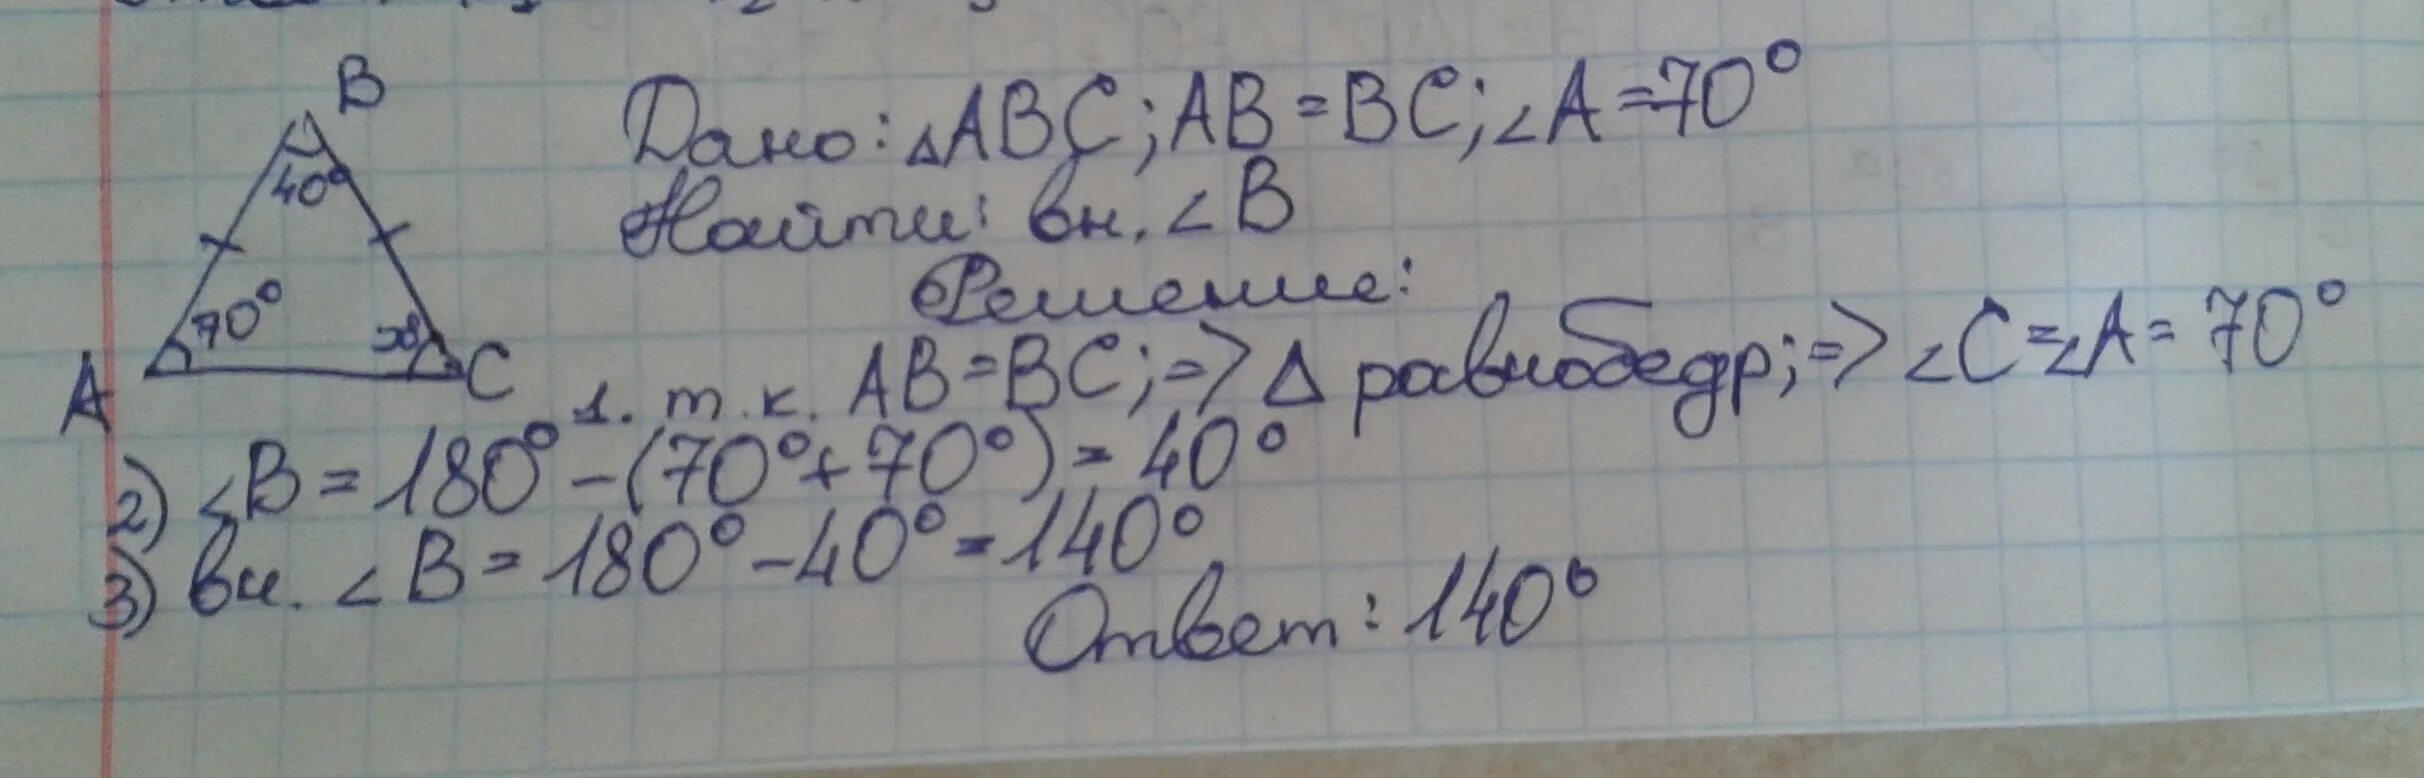 B
40°
70°
A
C
Дано: △ABC; AB = BC; ∠A = 70°
Найти: вн. ∠B
Решение:
1. т.к. AB = BC; => △ равнобедр; => ∠C = ∠A = 70°
2) ∠B = 180° - (70° + 70°) = 40°
3) вн. ∠B = 180° - 40° = 140°
Ответ: 140°